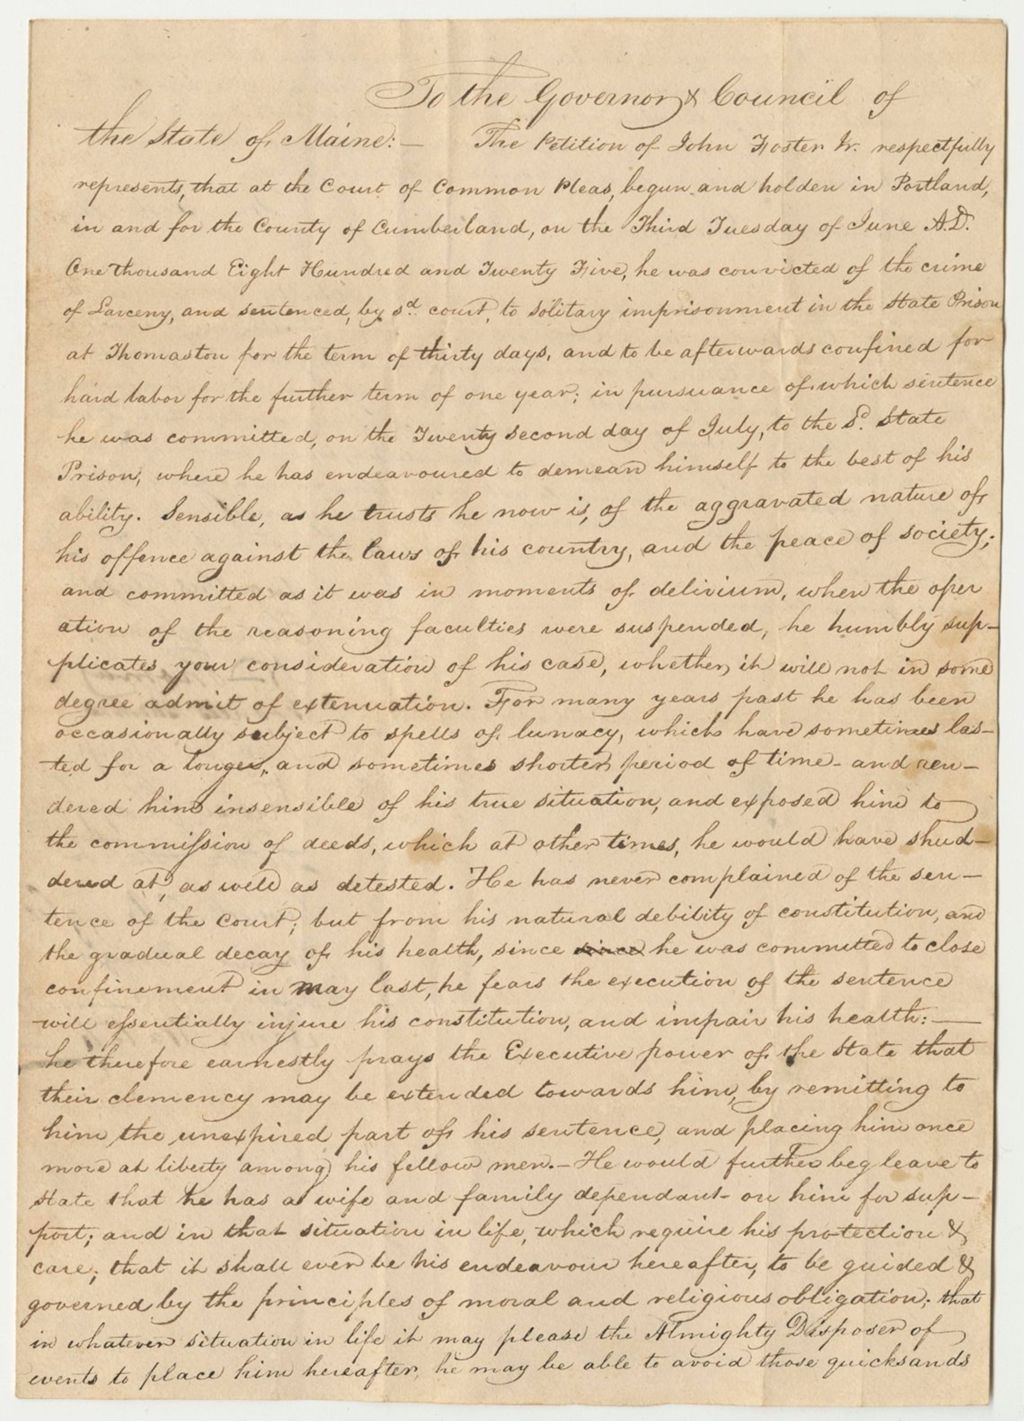 To the Governor & Council of
the State of Maine:— The Petition of John Foster Jr. respectfully
represents, that at the Court of Common Pleas, begun and holden in Portland,
in and for the County of Cumberland, on the Third Tuesday of June A.D.
One Thousand Eight Hundred and Twenty Five, he was convicted of the crime
of Larceny, and sentenced, by sd. court, to solitary imprisonment in the State Prison
at Thomaston for the term of thirty days, and to be afterwards confined for
hard labor for the further term of one year; in pursuance of which sentence
he was committed, on the Twenty second day of July, to the Sd. State
Prison, where he has endeavoured to demean himself to the best of his
ability. Sensible, as he trusts he now is, of the aggravated nature of
his offence against the laws of his country, and the peace of society;
and committed as it was in moments of delirium, when the oper
ation of the reasoning faculties were suspended, he humbly sup—
plicates, your consideration of his case, whether it will not in some
degree admit of extenuation. For many years past he has been
occasionally subject to spells of lunacy, which have sometimes las—
ted for a longer, and sometimes shorter period of time— and ren—
dered him insensible of his true situation, and exposed him to
the commission of deeds, which at other times, he would have shud—
dered at, as well as detested. He has never complained of the sen—
tence of the Court; but from his natural debility of constitution, and
the gradual decay of his health, since since he was committed to close
confinement in May last, he fears the execution of the sentence
will essentially injure his constitution, and impair his health:—
he therefore earnestly prays the Executive power of the State that
their clemency may be extended towards him, by remitting to
him, the unexpired part of his sentence, and placing him once
more at liberty among his fellow men.— He would further beg leave to
state that he has a wife and family dependant on him for sup—
port; and in that situation in life, which require his protection &
care; that it shall ever be his endeavour hereafter, to be guided &
governed by the principles of moral and religious obligation; that
in whatever situation in life it may please the Almighty Disposer of
events to place him hereafter, he may be able to avoid those quicksands